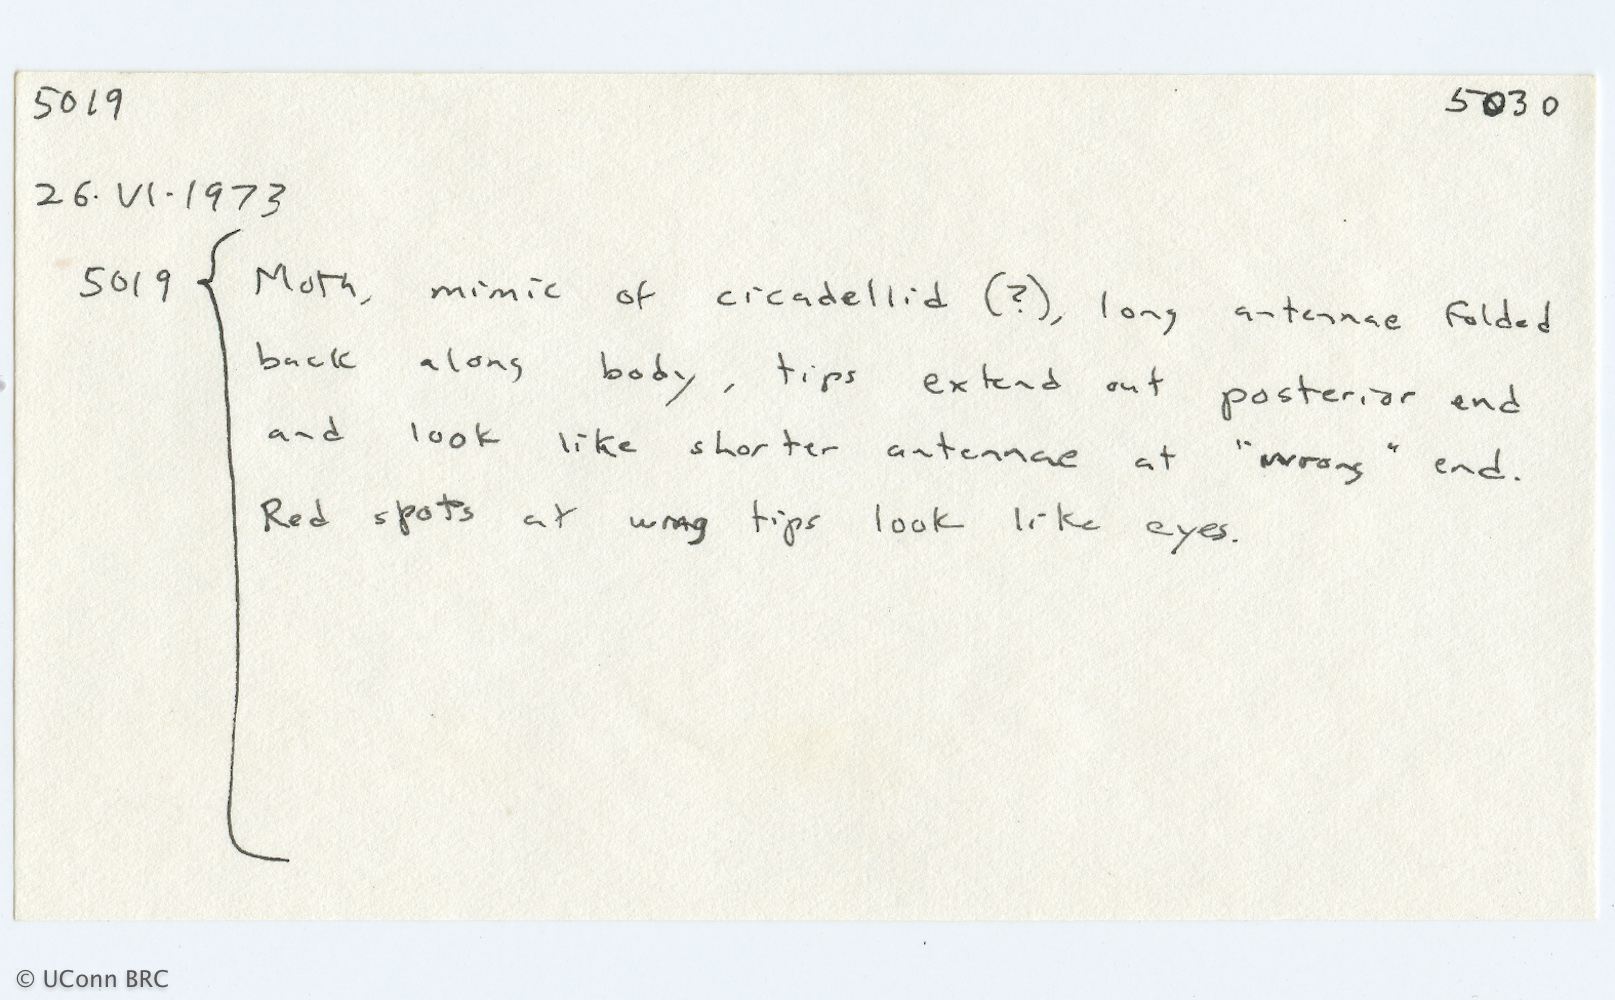 5019 5030
26.VI.1973
5019 { Moth, mimic of cicadellid (?), long antennae folded
back along body, tips extend out posterior end
and look like shorter antennae at "wrong" end.
Red spots at wrong tips look like eyes.
© UConn BRC